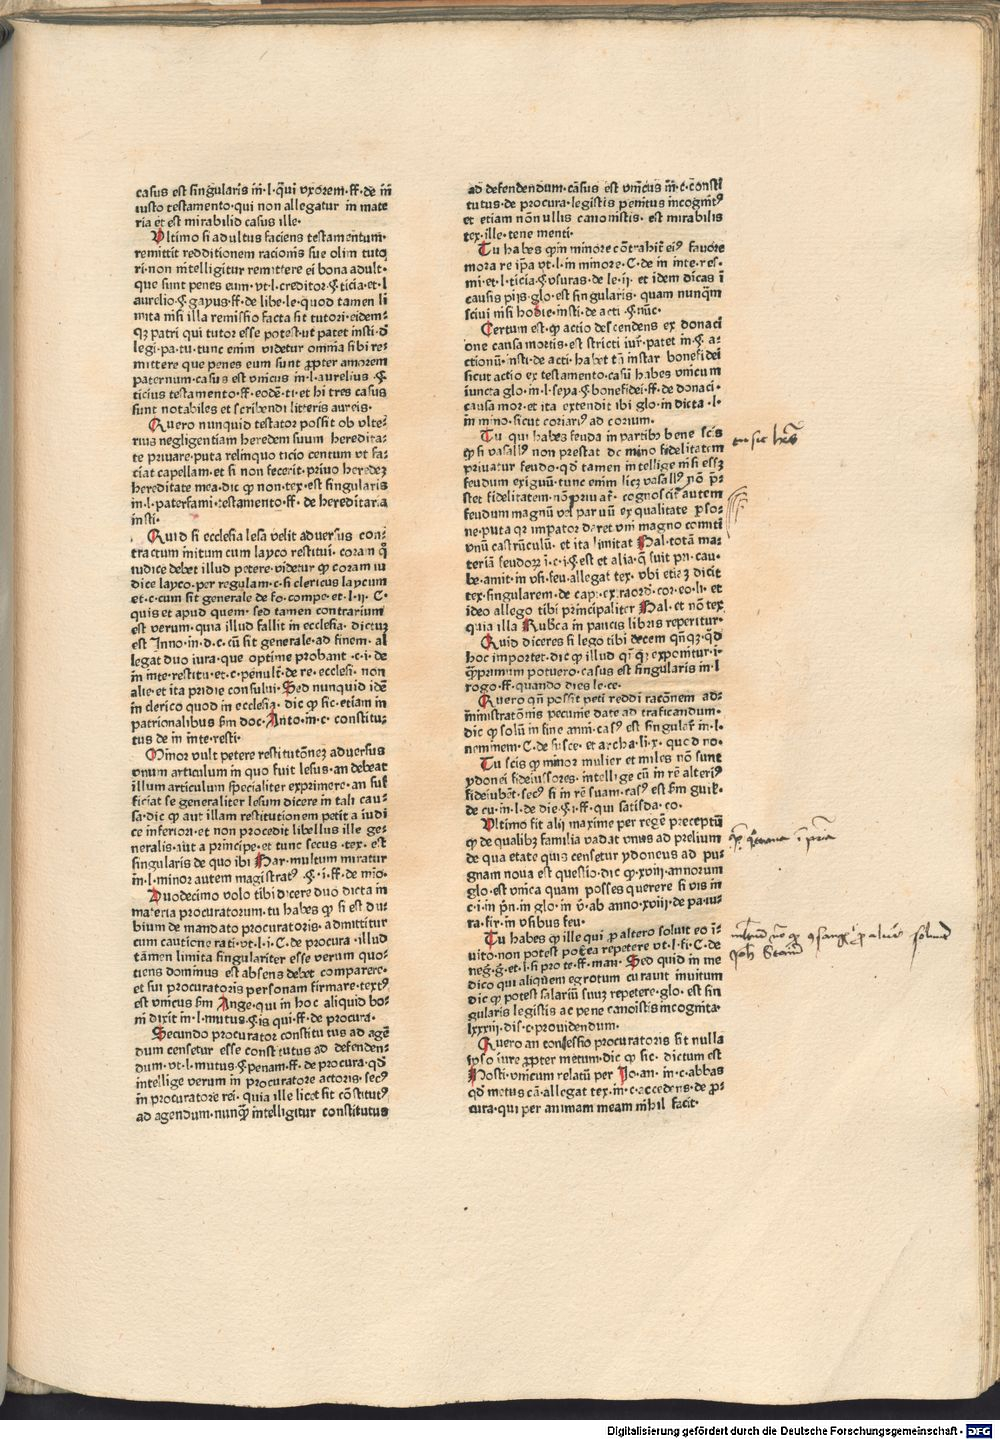 casus est singularis in̄·l·q̄ui vxorem·ff·de in̄
iusto testamento·qui non allegatur in mate
ria et est mirabilio casus ille·
Ultimo si adultus faciens testamentum·
remittit redditionem racionis sue olim tuto
ri·non intelligitur remittere ei bona adult·
que sunt penes eum·vt·l·creditor·§·ticia·et·l
aurelio·§·gayus·ff·de libe·le·quod tamen li
mita nisi illa remissio facta sit tutori·eidem⸗
qꝫ patri qui tutor esse potest·ut patet insti·ď
legi·pa·tu·tunc enim videtur omnia sibi re⸗
mittere que penes eum sunt ꝓpter amorem
paternum·casus est vnicus in·l·aurelius·§·
ticius testamento·ff·eodē·ti·et hi tres casus
sunt notabiles et scribendi litteris aureis·
Quero nunquid testator possit ob vlte⸗
rius negligentiam heredem suum heredita⸗
te priuare·puta relinquo ticio centum vt fa⸗
ciat capellam·et si non fecerit·priuo heredeꝫ
hereditate mea·dic ꝙ non·tex·est singularis
in·l·paterfami·testamento·ff·de hereditaria
insti·
Quid si ecclesia lesa velit aduersus con⸗
tractum initum cum layco restitui·coram q̊
iudice debet illud petere·videtur ꝙ coram iu
dice layco·per regulam·c·si clericus laycum
et·c·cum sit generale de fo·compe·et·l·ij·C·
quis et apud quem·sed tamen contrarium
est verum·quia illud fallit in ecclesia·dictuꝫ
est Inno·in·d·c·cū sit generale·ad finem·al
legat duo iura·que optime probant·c·i·de
in inte·restitu·et·c·penult·de re·ecclesi·non
alie·et ita pridie consului·Sed nunquid idē
in clerico quod in ecclesia·dic ꝙ sic·etiam in
patrionalibus s̄m doc·Anto·in·c·constitu⸗
tus de in inte·resti·
Minor vult petere restitutōneꝫ aduersus
vnum articulum in quo fuit lesus·an debeat
illum articulum specialiter exprimere·an suf
ficiat se generaliter lesum dicere in tali cau⸗
sa·dic ꝙ aut illam restitutionem petit a iudi
ce inferiori·et non procedit libellus ille ge⸗
neralis·aut a principe·et tunc secus·tex·est
singularis de quo ibi Bar·multum miratur
in·l·minor autem magistratꝰ·§·i·ff·de mīo·
Duodecimo volo tibi dicere duo dicta in
materia procuratorum·tu habes ꝙ si est du⸗
bium de mandato procuratoris·admittitur
cum cautione rati·vt·l·i·C·de procura·illud
tamen limita singulariter esse verum quo⸗
tiens dominus est absens debet comparere·
et sui procuratoris personam firmare·textꝰ
est vnicus s̄m Ange·qui in hoc aliquid bo⸗
ni dixit in·l·mutus·§·is qui·ff·de procura·
Secundo procurator constitutus ad agē
dum censetur esse constitutus ad defenden⸗
dum·vt·l·mutus·§·penam·ff·de procura·qď
intellige verum in procuratore actoris·secꝰ
in procuratorie rei·quia ille licet sit cōstitutꝰ
ad agendum·nunqͣ intelligitur constitutus
ad defendendum·casus est vnicus in·c·consti
tutus·de procura·legistis penitus incognitꝰ
et etiam nōnullis canonistis·est mirabilis
tex·ille·tene menti·
Tu habes ꝙ in minore cōtrahit̄ eiꝰ fauore
mora re ip̄a vt·l·in minore·C·de in inte·res⸗
mi·et·l·ticia·§·vsuras·de le·ij·et idem dicas ī
causis pijs·glo·est singularis·quam nunqͣm
sciui nisi hodie·insti·de acti·§·nūc·
Certum est·ꝙ actio descendens ex donaci
one causa mortis·est stricti iur̄·patet in·§·a⸗
ctionū·insti·de acti·habet tn̄ instar bonefidei
sicut actio ex testamento·casū habes vnicum
iuncta glo·in·l·seya·§·bonefidei·ff·de donaci·
causa mor·et ita extendit ibi glo·in dicta·l·
in mino·sicut coriariꝰ ad corium·
Tu qui habes feuda in partibꝰ bene scis
ꝙ si vasallꝰ non prestat domino fidelitatem
priuatur feudo·qd tamen intellige nisi esseꝫ
feudum exiguū·tunc enim licꝫ vasallꝰ nō p̄⸗
stet fidelitatem·nō priuat̄·cognoscit̄ autem
feudum magnū vel paruū ex qualitate ꝑso⸗
ne·puta qꝛ imꝑator daret vni magno comiti
vnū castrūculū·et ita limitat Bal·totā ma⸗
teriā feudoꝝ·i·c·i·§·est et alia·q̄ fuit pri·cau·
be·amit·in vsi·feu·allegat tex·vbi etieꝫ dicit
tex·singularem·de cap·extraord·cor·eo·li·et
ideo allego tibi principaliter Bal·et nō tex·
quia illa Rubꝰca in paucis libris reperitur·
Quid diceres si lego tibi decem qn̄qꝫ·qď
hoc importet·dic ꝙ illud qn̄qꝫ exponitur·i·
qͣꝫprimum potuero·casus est singularis in·l
rogo·ff·quando dies le·ce·
Quero qn̄ possit peti reddi racōnem ad⸗
ministratōnis pecunie date ad traficandum·
dic ꝙ solū in fine anni·casꝰ est singular̄ in·l·
neminem·C·de susce·et archa·li·x·quod no·
Tu scis ꝙ minor mulier et miles nō sunt
ydonei fideiussores·intellige cū in rē alteriꝰ
fideiubēt·secꝰ si in rē suam·casꝰ est s̄m guil̄·
de cu·in·l·de die·§·i·ff·qui satisda·co·
Ultimo sit alij maxime per regē preceptū
ꝙ de qualibꝫ familia vadat vnus ad prelium
de qua etate quis censetur ydoneus ad pu⸗
gnam noua est questio·dic ꝙ·xviij·annorum
glo·est vnica quam posses querere si vis in
c·i·in pn̄·in glo·in v̄·ab anno·xviij·de pa·iu⸗
ra·fir·in vsibus feu·
Tu habes ꝙ ille qui ꝓ altero soluit eo ī⸗
uito·non potest postea repetere vt·l·fi·C·de
neg·ḡ·et·l·si pro te·ff·man·Sed quid in me
dico qui aliquem egrotum curauit inuitum
dic ꝙ potest salariū suuꝫ repetere·glo·est sin
gularis legistis ac pene canoīstis incognita·
lxxxiij·dis·c·prouidendum·
Quero an confessio procuratoris sit nulla
ipso iure ꝓpter metum·dic ꝙ sic·dictum est
Hosti·vnicum relatū per Jo·an·in·c·abbas
qd metus cā·allegat tex·in·c·accedens·de ꝓ⸗
cura·qui per animam meam nihil facit·
Digitalisierung gefördert durch die Deutsche Forschungsgemeinschaft - DFG